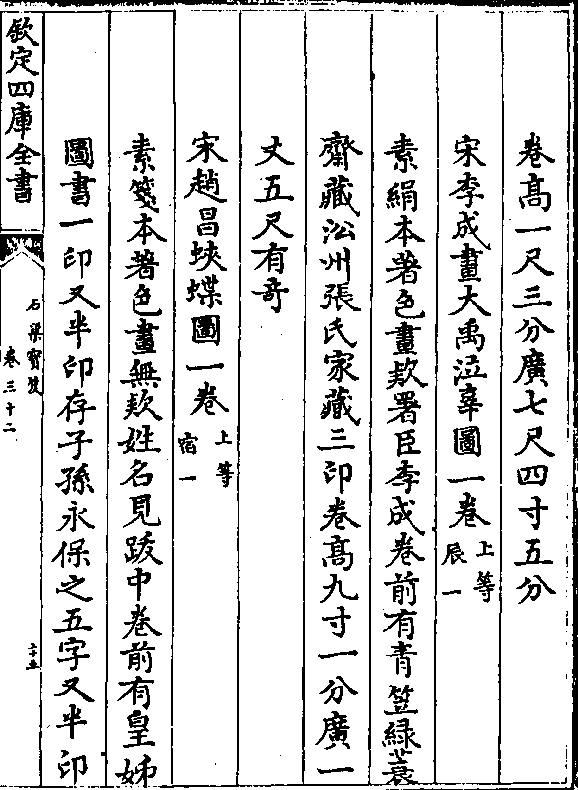 卷髙一尺三分廣七尺四寸五分
宋李成畫大禹泣辜圖一卷 上等 辰一
素絹本著色畫欵署臣李成卷前有青笠緑蓑
齋藏泓州張氏家藏三印卷髙九寸一分廣一
丈五尺有竒
宋趙昌蛺蝶圖一卷 上等 宿一
素箋本著色畫無欵姓名見䟦中卷前有皇姊
圖書一印又半印存子孫永保之五字又半印
欽定四庫全書
石渠寶笈
卷三十二
二十五